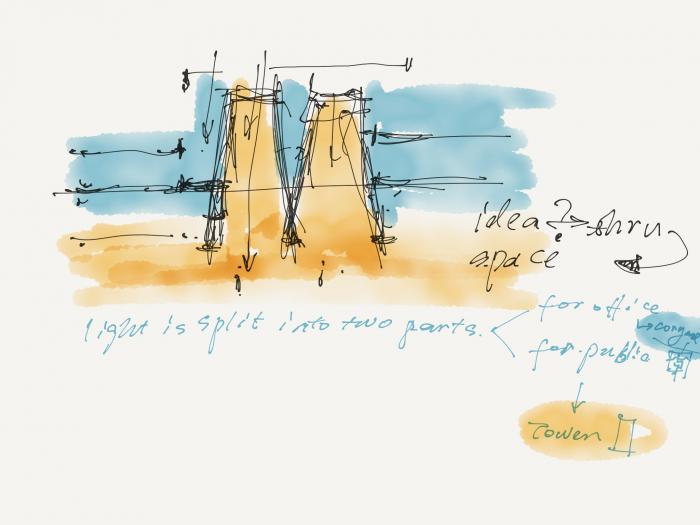 idea? → thru
space
light is split into two parts.
for office
for public
Tower